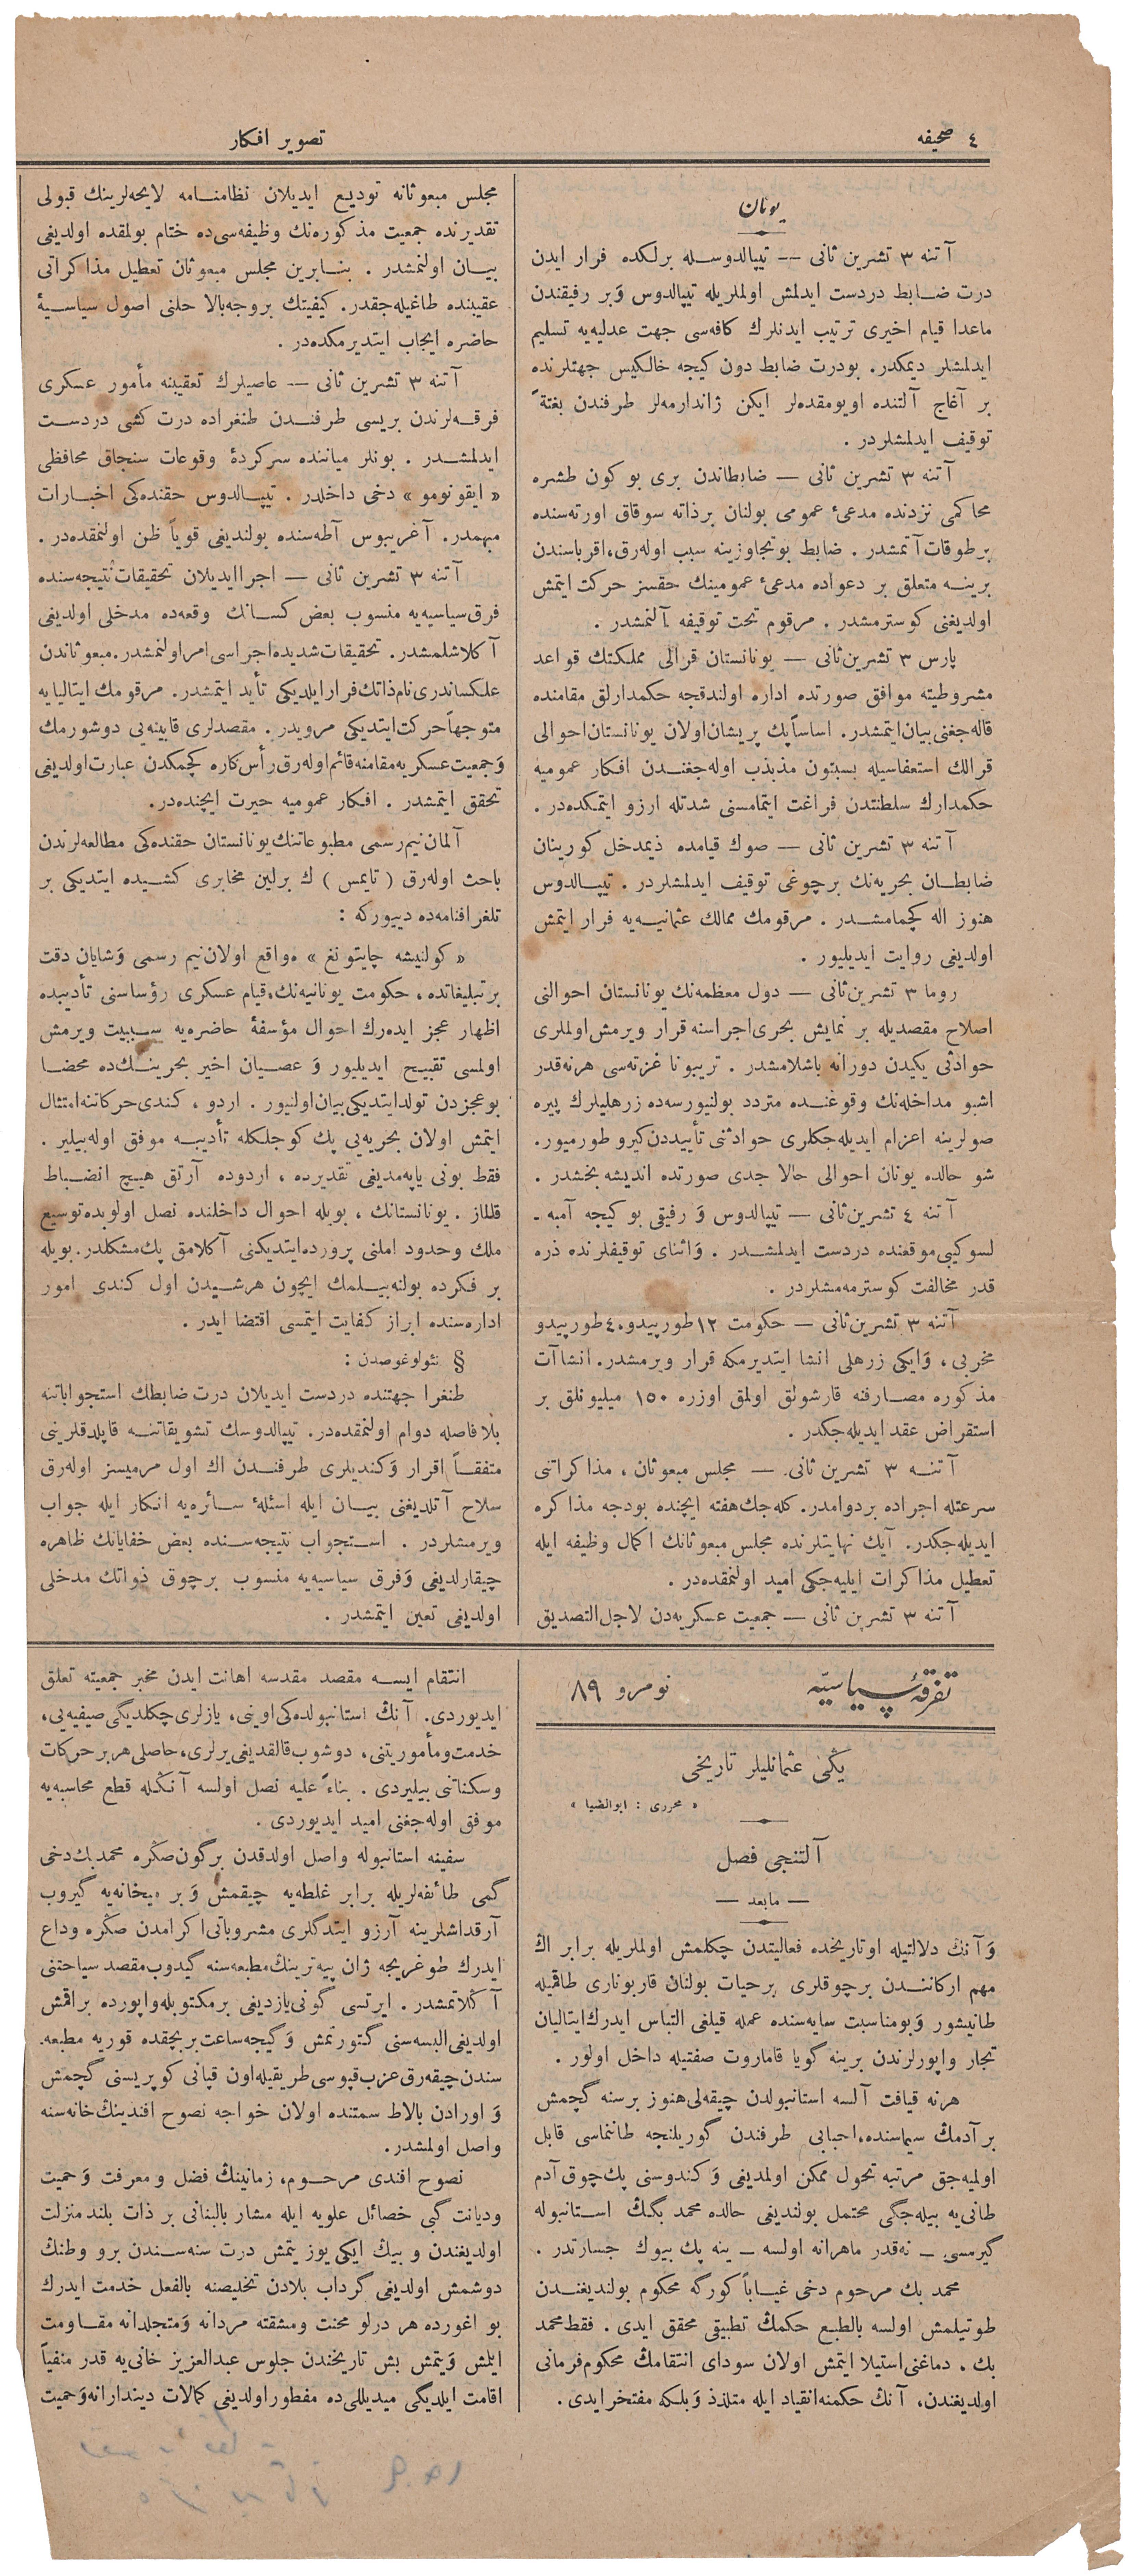 ٤ صحیفه
تصویر افکار
یونان
آتنه ٣ تشرین ثانی -- تیپالدوسله برلکده فرار ایدن
درت ضابط دردست ایدلمش اولملریله تیپالدوس وبر رفیقندن
ماعدا قیام اخیری ترتیب ایدنلرك کافه‌سی جهت عدلیه‌یه تسلیم
ایدلمشلر دیمکدر. بودرت ضابط دون کیجه خالکیس جهتلرنده
بر آغاج آلتنده اویومقده‌لر ایکن ژاندارمه‌لر طرفندن بغتةً
توقیف ایدلمشلردر .
آتنه ٣ تشرین ثانی — ضابطاندن بری بو کون طشره
محاکمی نزدنده مدعیٔ عمومی بولنان برذاته سوقاق اورته‌سنده
برطوقات آتمشدر . ضابط بوتجاوزینه سبب اوله‌رق، اقرباسندن
برینه متعلق بر دعواده مدعیٔ عمومینك حقسز حرکت ایتمش
اولدیغنی کوسترمشدر . مرقوم تحت توقیفه آلنمشدر .
پارس ٣ تشرین ثانی — یونانستان قرالی مملکتك قواعد
مشروطیته موافق صورتده اداره اولندقجه حکمدارلق مقامنده
قاله‌جغنی بیان ایتمشدر. اساساً پك پریشان اولان یونانستان احوالی
قرالك استعفاسیله بسبتون مذبذب اوله‌جغندن افکار عمومیه
حکمدارك سلطنتدن فراغت ایتمامسنی شدتله ارزو ایتمکده‌در .
آتنه ٣ تشرین ثانی — صوك قیامده ذیمدخل کورینان
ضابطان بحریه‌نك برچوغی توقیف ایدلمشلردر . تیپالدوس
هنوز اله کچمامشدر . مرقومك ممالك عثمانیه‌یه فرار ایتمش
اولدیغی روایت ایدیلیور .
روما ٣ تشرین ثانی — دول معظمه‌نك یونانستان احوالنی
اصلاح مقصدیله بر نمایش بحری اجراسنه قرار ویرمش اولملری
حوادثی یکیدن دورانه باشلامشدر . تریبونا غزته‌سی هرنه‌قدر
اشبو مداخله‌نك وقوعنده متردد بولنیورسه‌ده زرهلیلرك پیره
صولرینه اعزام ایدیله‌جکلری حوادثنی تأییددن کیرو طورمیور.
شو حالده یونان احوالی حالا جدی صورتده اندیشه بخشدر .
آتنه ٤ تشرین ثانی — تیپالدوس و رفیقی بو کیجه آمبه -
لسوکیپی موقعنده دردست ایدلمشدر . واثنای توقیفلرنده ذره
قدر مخالفت کوسترمه‌مشلردر .
آتنه ٣ تشرین ثانی — حکومت ١٢ طورپیدو، ٤ طورپیدو
مخربی ، وایکی زرهلی انشا ایتدیرمکه قرار ویرمشدر. انشاآت
مذکوره مصارفنه قارشولق اولمق اوزره ١٥٠ میلیونلق بر
استقراض عقد ایدیله‌جکدر .
آتنه ٣ تشرین ثانی — مجلس مبعوثان ، مذاکراتنی
سرعتله اجراده بردوامدر. کله‌جك هفته ایچنده بودجه مذاکره
ایدیله‌جکدر. آیك نهایتلرنده مجلس مبعوثانك اکمال وظیفه ایله
تعطیل مذاکرات ایلیه‌جکی امید اولنمقده‌در .
آتنه ٣ تشرین ثانی — جمعیت عسکریه‌دن لاجل التصدیق
مجلس مبعوثانه تودیع ایدیلان نظامنامه لایحه‌لرینك قبولی
تقدیرنده جمعیت مذکوره‌نك وظیفه‌سی‌ده ختام بولمقده اولدیغی
بیان اولنمشدر . بنابرین مجلس مبعوثان تعطیل مذاکراتی
عقیبنده طاغیله‌جقدر. کیفیتك بروجه‌بالا حلنی اصول سیاسیهٔ
حاضره ایجاب ایتدیرمکده‌در .
آتنه ٣ تشرین ثانی -- عاصیلرك تعقیبنه مأمور عسکری
فرقه‌لرندن بریسی طرفندن طنغراده درت کشی دردست
ایدلمشدر . بونلر میاننده سرکردهٔ وقوعات سنجاق محافظی
« ایقونومو » دخی داخلدر . تیپالدوس حقنده‌کی اخبارات
مبهمدر. آغریبوس آطه‌سنده بولندیغی قویاً ظن اولنمقده‌در .
آتنه ٣ تشرین ثانی — اجرا ایدیلان تحقیقات نتیجه‌سنده
فرق سیاسیه‌یه منسوب بعض کسانك وقعه‌ده مدخلی اولدیغی
آکلاشلمشدر. تحقیقات شدیده اجراسی امر اولنمشدر. مبعوثاندن
علکساندری نام ذاتك فرار ایلدیکی تأید ایتمشدر. مرقومك ایتالیایه
متوجهاً حرکت ایتدیکی مرویدر . مقصدلری قابینه‌یی دوشورمك
وجمعیت عسکریه مقامنه قائم اوله‌رق رأس کاره کچمکدن عبارت اولدیغی
تحقق ایتمشدر . افکار عمومیه حیرت ایچنده‌در.
آلمان نیم رسمی مطبوعاتنك یونانستان حقنده‌کی مطالعه‌لرندن
باحث اوله‌رق ( تایمس ) ك برلین مخابری کشیده ایتدیکی بر
تلغرافنامه‌ده دییورکه :
« کولنیشه چایتونغ » ه واقع اولان نیم رسمی وشایان دقت
برتبلیغاتده ، حکومت یونانیه‌نك، قیام عسکری رؤساسنی تأدیبده
اظهار عجز ایده‌رك احوال مؤسفهٔ حاضره‌یه سببیت ویرمش
اولمسی تقبیح ایدیلیور و عصیان اخیر بحرینك‌ده محضا
بوعجزدن تولد ایتدیکی بیان اولنیور . اردو ، کندی حرکاتنه امتثال
ایتمش اولان بحریه‌یی پك کوجلکله تأدیبه موفق اوله‌بیلیر .
فقط بونی یاپه‌مدیغی تقدیرده ، اردوده آرتق هیچ انضباط
قالماز . یونانستانك ، بویله احوال داخلنده نصل اولوبده توسیع
ملك وحدود املنی پرورده ایتدیکنی آکلامق پك مشکلدر. بویله
بر فکرده بولنه‌بیلمك ایچون هرشیدن اول کندی امور
اداره‌سنده ابراز کفایت ایتمسی اقتضا ایدر .
§ نئولوغوصدن :
طنغرا جهتنده دردست ایدیلان درت ضابطك استجواباتنه
بلافاصله دوام اولنمقده‌در. تیپالدوسك تشویقاتنه قاپلدقلرینی
متفقاً اقرار وکندیلری طرفندن اك اول مرمیسز اوله‌رق
سلاح آتلدیغنی بیان ایله اسئلهٔ سائره‌یه انکار ایله جواب
ویرمشلردر . استجواب نتیجه‌سنده بعض خفایانك ظاهره
چیقارلدیغی وفرق سیاسیه‌یه منسوب برچوق ذواتك مدخلی
اولدیغی تعین ایتمشدر .
تفرقهٔ سیاسیّه
نومرو ٨٩
یڭی عثمانلیلر تاریخی
« محرری : ابوالضیا »
آلتنجی فصل
— مابعد —
وآنڭ دلالتیله اوتاریخده فعالیتدن چکلمش اولملریله برابر اڭ
مهم ارکانندن برچوقلری برحیات بولنان قاربوناری طاقمیله
طانیشور وبومناسبت سایه‌سنده عمله قیلغی التباس ایدرك ایتالیان
تجار واپورلرندن برینه گویا قاماروت صفتیله داخل اولور .
هرنه قیافت آلسه استانبولدن چیقه‌لی هنوز برسنه گچمش
برآدمڭ سیماسنده، احبابی طرفندن گوریلنجه طانماسی قابل
اولمیه‌جق مرتبه تحول ممکن اولمدیغی وکندوسنی پك چوق آدم
طانی‌یه بیله‌جگی محتمل بولندیغی حالده محمد بگڭ استانبوله
گیرمسی — نه‌قدر ماهرانه اولسه — ینه پك بیوك جسارتدر .
محمد بك مرحوم دخی غیاباً کورگه محکوم بولندیغندن
طوتیلمش اولسه بالطبع حکمڭ تطبیقی محقق ایدی . فقط محمد
بك ، دماغنی استیلا ایتمش اولان سودای انتقامڭ محکوم فرمانی
اولدیغندن، آنڭ حکمنه انقیاد ایله متلذذ وبلکه مفتخر ایدی .
انتقام ایسه مقصد مقدسه اهانت ایدن مخبر جمعیته تعلق
ایدیوردی. آنڭ استانبولده‌کی اوینی، یازلری چکلدیگی صیفیه‌یی،
خدمت ومأموریتنی، دوشوب قالقدیغی یرلری، حاصلی هر بر حرکات
وسکناتنی بیلیردی . بناءً علیه نصل اولسه آنڭله قطع محاسبه‌یه
موفق اوله‌جغنی امید ایدیوردی .
سفینه استانبوله واصل اولدقدن برگون صڭره محمد بك دخی
گمی طائفه‌لریله برابر غلطه‌یه چیقمش وبر میخانه‌یه گیروب
آرقداشلرینه آرزو ایتدگلری مشروباتی اکرامدن صڭره وداع
ایدرك طوغریجه ژان پیه‌ترینڭ مطبعه‌سنه گیدوب مقصد سیاحتنی
آڭلاتمشدر . ایرتسی گونی یازدیغی برمکتوبله واپورده براقمش
اولدیغی البسه‌سنی گتورتمش وگیجه ساعت بربچقده قوریه مطبعه‌
سندن چیقه‌رق عزب قپوسی طریقیله اون قپانی کوپریسنی گچمش
و اورادن بالاط سمتنده اولان خواجه نصوح افندینڭ خانه‌سنه
واصل اولمشدر.
نصوح افندی مرحوم، زمانینڭ فضل ومعرفت وحمیت
ودیانت گبی خصائل علویه ایله مشار بالبنانی بر ذات بلند منزلت
اولدیغندن و بیڭ ایکی یوز یتمش درت سنه‌سندن برو وطنڭ
دوشمش اولدیغی گرداب بلادن تخلیصنه بالفعل خدمت ایدرك
بو اغورده هر درلو محنت ومشقته مردانه ومتجلدانه مقاومت
ایلمش ویتمش بش تاریخندن جلوس عبدالعزیز خانی‌یه قدر منفیاً
اقامت ایلدیگی میدیللی‌ده مفطور اولدیغی کمالات دیندارانه وحمیت